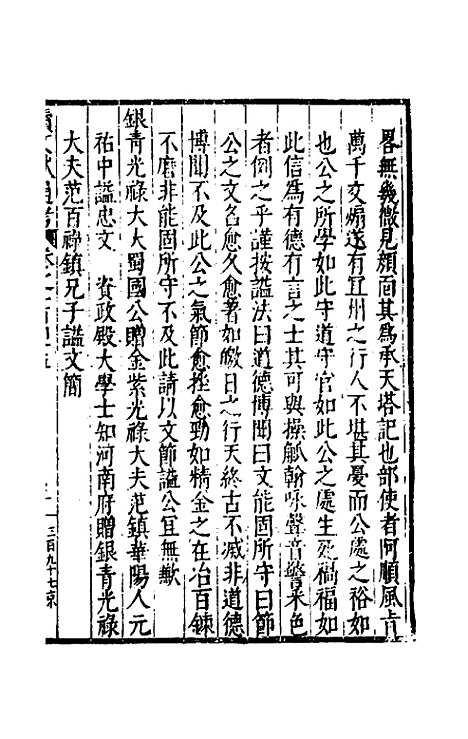 畧無幾微見顏面其為承天塔記也部使者阿順風旨
萬千交煽遂有宜州之行人不堪其憂而公處之裕如
也公之所學如此守道守官如此公之處生死禍福如
此信為有德有言之士其可與操觚翰咏聲音警采色
者例之乎謹按謚法曰道德博聞曰文能固所守曰節
公之文名愈久愈著如皦日之行天終古不滅非道德
博聞不及此公之氣節愈挫愈勁如精金之在冶百鍊
不磨非能固所守不及此請以文節謚公宜無歉
銀青光祿大夫蜀國公贈金紫光祿大夫范鎮華陽人元
祐中謚忠文　資政殿大學士知河南府贈銀青光祿
大夫范百祿鎮兄子謚文簡
續文獻通考 卷之一百四十五
三百九十七